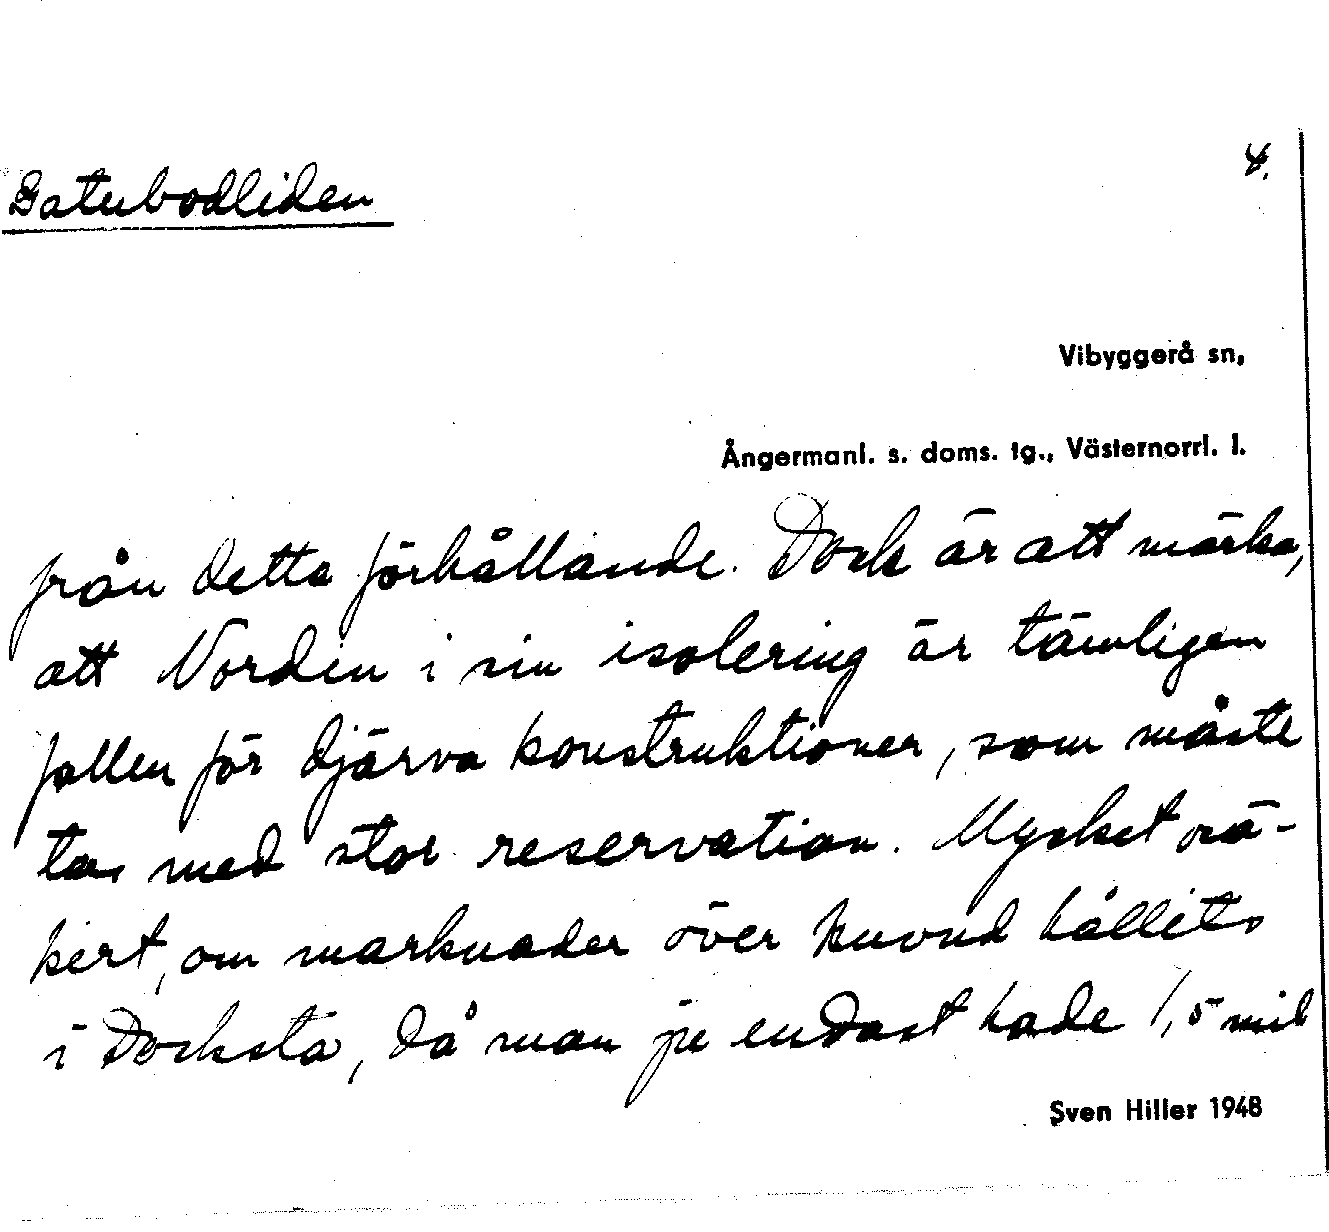 Gatubodliden
4.
Vibyggerå sn,
Ångermanl. s. doms. tg., Västernorrl. l.
från detta förhållande. Dock är att märka,
att Nordin i sin isolering är tämligen
fallen för djärva konstruktioner, som måste
tas med stor reservation. Mycket osä-
kert, om marknader över huvud hållits
i Docksta, då man ju endast hade 1,5 mil
Sven Hiller 1948